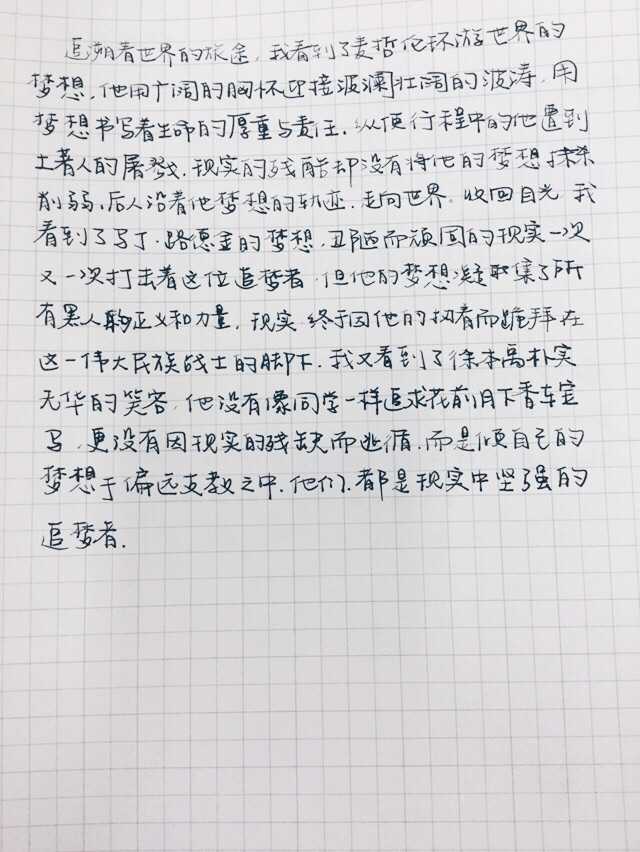 追溯着世界的旅途,我看到了麦哲伦环游世界的
梦想,他用广阔的胸怀迎接波澜壮阔的波涛,用
梦想书写着生命的厚重与责任,纵使行程中的他遭到
土著人的屠戮,现实的残酷却没有将他的梦想抹杀
削弱,后人沿着他梦想的轨迹,走向世界。收回目光,我
看到了马丁·路德金的梦想,丑陋而顽固的现实一次
又一次打击着这位追梦者,但他的梦想凝聚集了所
有黑人的正义和力量,现实终于因他的执着而跪拜在
这一伟大民族战士的脚下,我又看到了徐本禹朴实
无华的笑容,他没有像同学一样追求花前月下香车宝
马,更没有因现实的残缺而逃循,而是倾自己的
梦想于偏远支教之中,他们,都是现实中坚强的
追梦者.